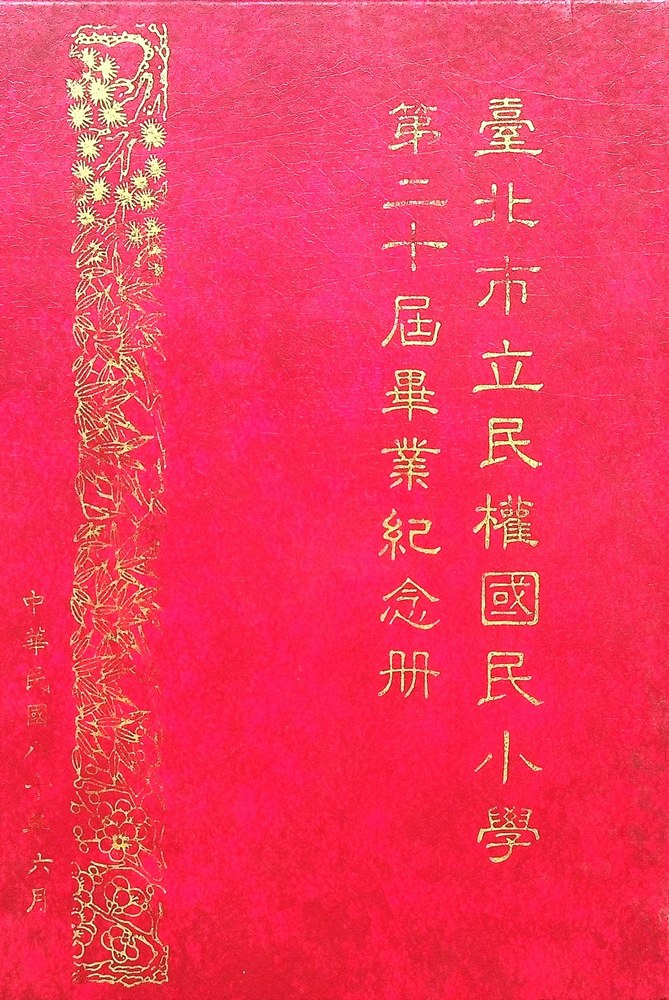 臺北市立民權國民小學
第二十屆畢業紀念册
中華民國八年六月